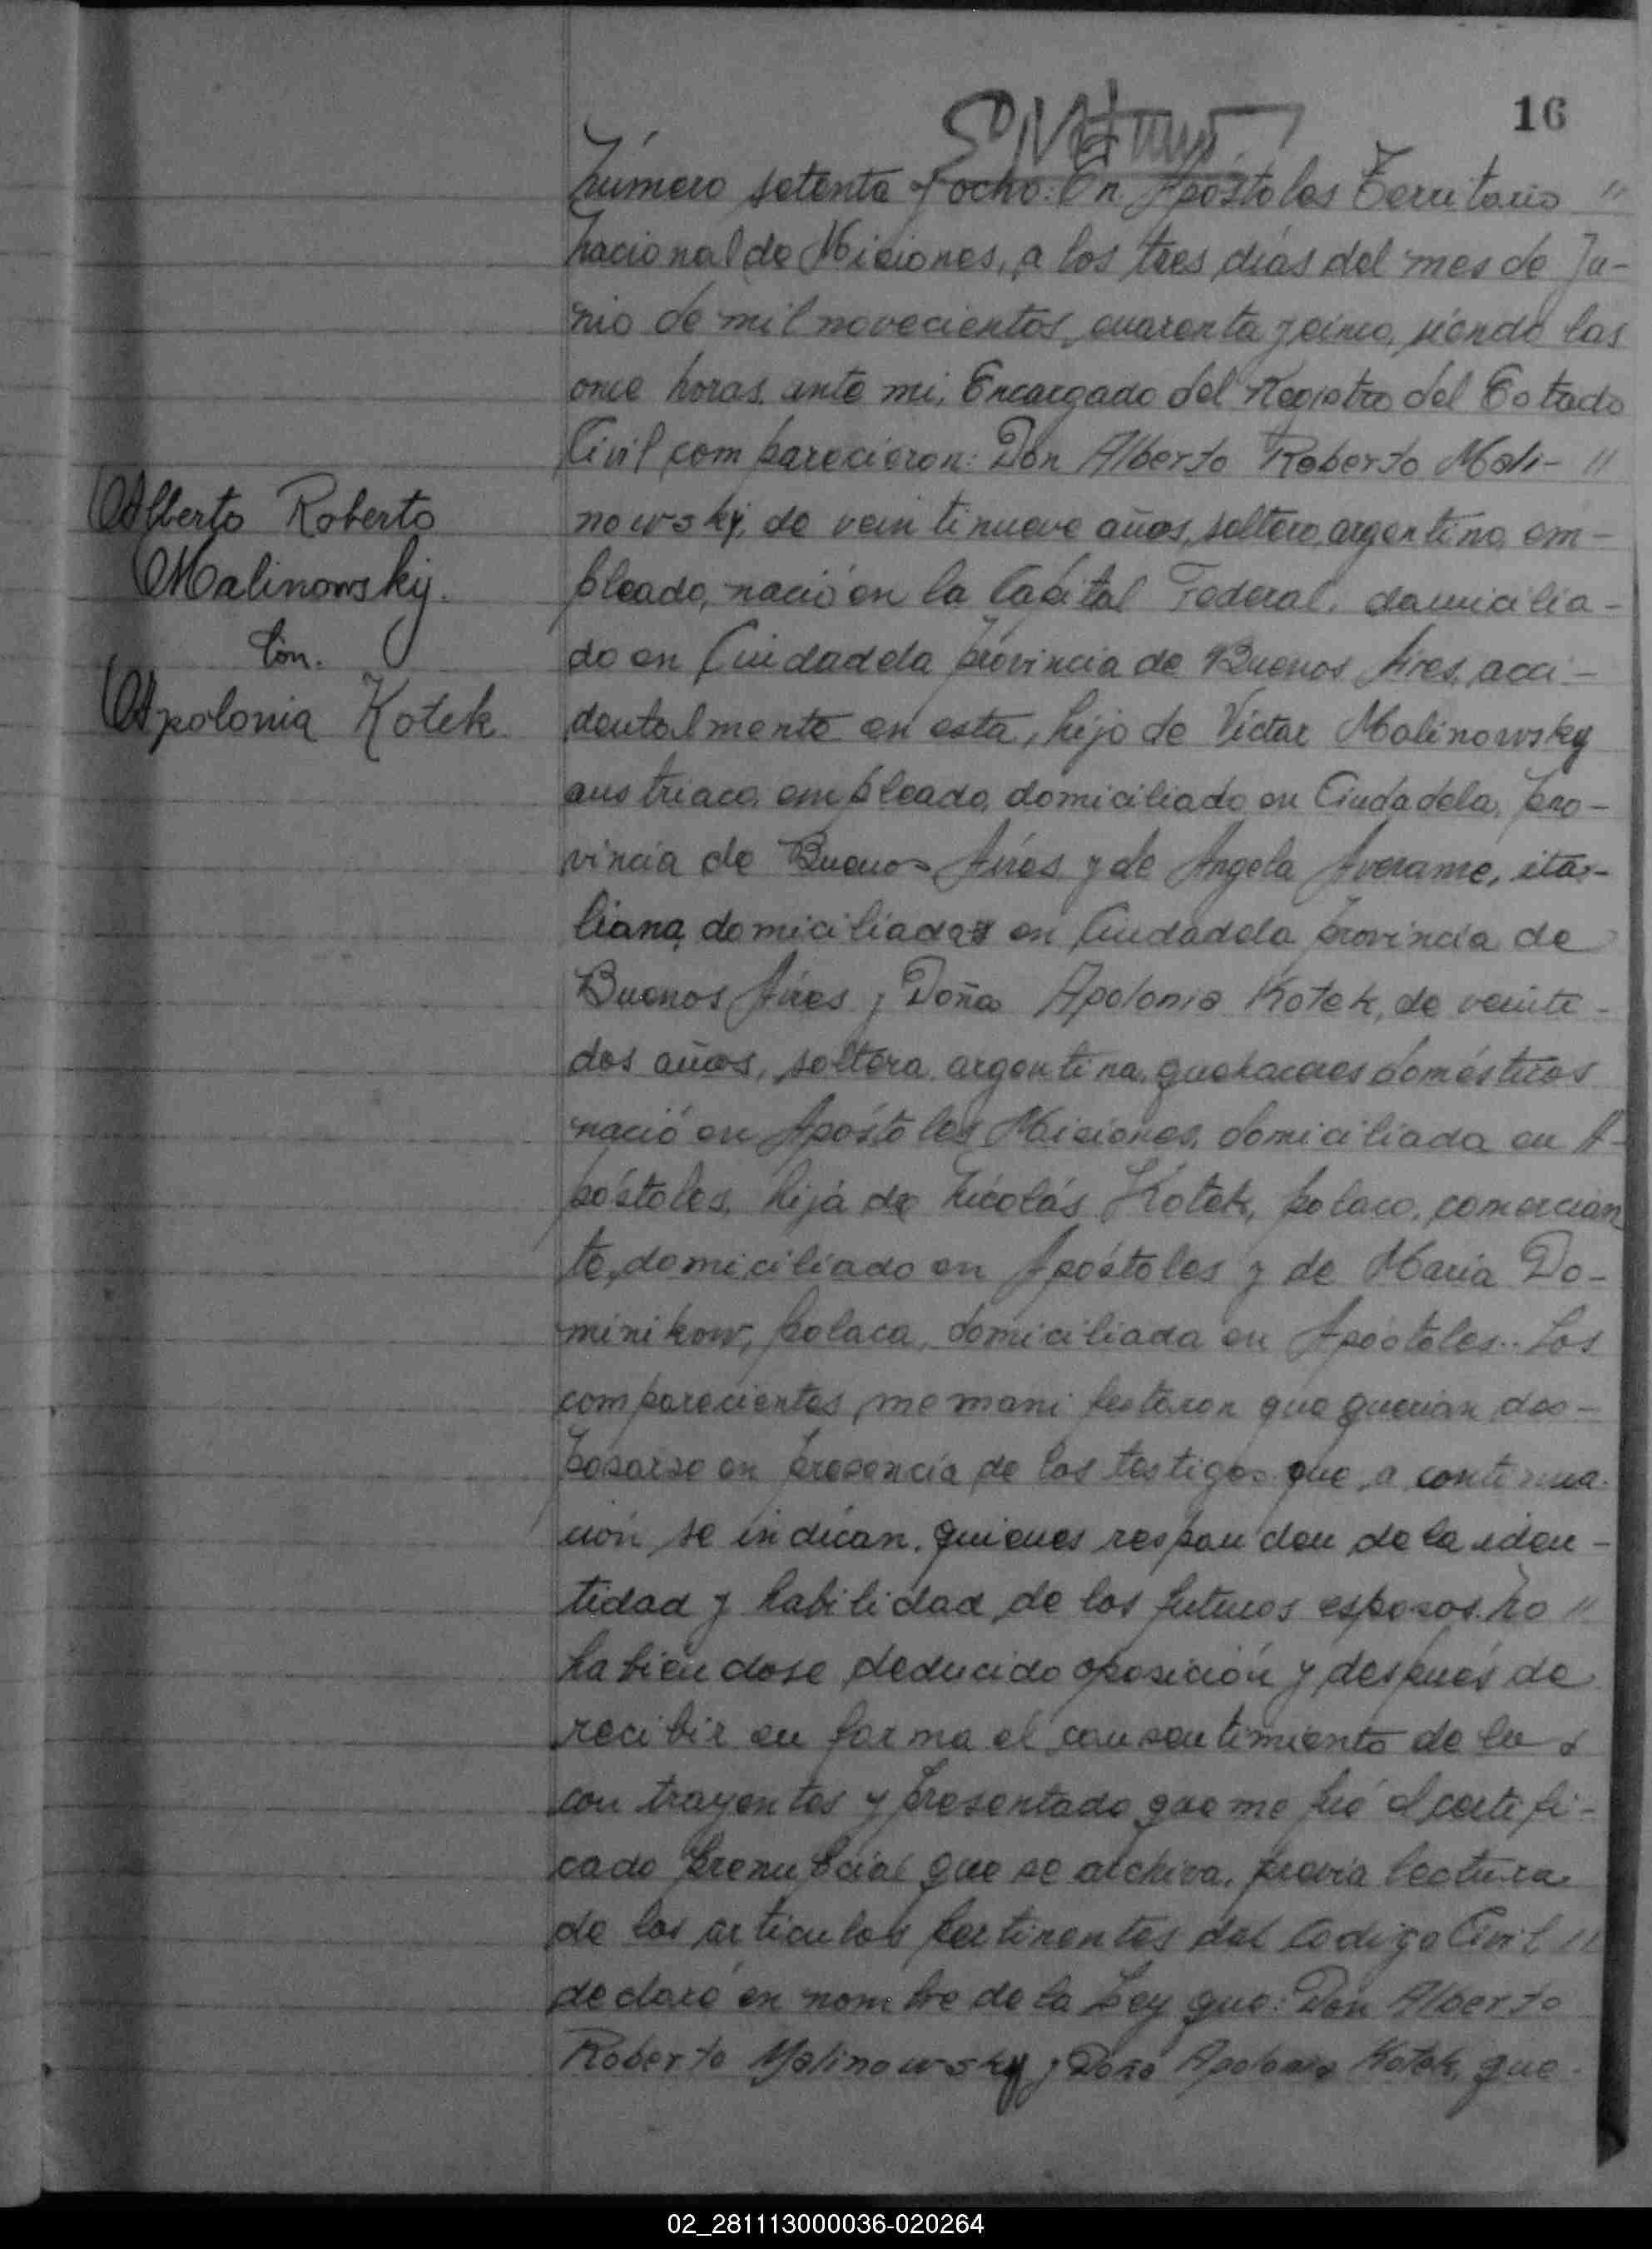 16
Número setenta y ocho: En Apóstoles Territorio "
Nacional de Misiones, a los tres días del mes de Ju-
nio de mil novecientos cuarenta y cinco, siendo las
once horas, ante mi, Encargado del Registro del Estado
Civil, comparecieron: Don Alberto Roberto Mali- "
nowskij, de veintinueve años, soltero, argentino, em-
pleado, nació en la Capital Federal, domicilia-
do en Ciudadela provincia de Buenos Aires, acci-
dentalmente en esta, hijo de Víctor Malinowsky
austriaco, empleado, domiciliado en Ciudadela, Pro-
vincia de Buenos Aires y de Angela Averame, ita-
liana, domiciliada en Ciudadela provincia de
Buenos Aires y Doña Apolonia Kotek, de veinti-
dos años, soltera, argentina, quehaceres domésticos
nació en Apóstoles Misiones, domiciliada en A-
póstoles, hija de Nicolás Kotek, polaco, comercian
te, domiciliado en Apóstoles y de María Do-
minikow, polaca, domiciliada en Apóstoles.. Los
comparecientes, me manifestaron que querían des-
posarse en presencia de los testigos que, a continua-
ción se indican, quienes responden de la iden-
tidad y habilidad de los futuros esposos. No "
habiendose deducido oposición y después de
recibir en forma el consentimiento de los
contrayentes y presentado que me fué el certifi-
cado prenupcial que se archiva, previa lectura
de los articulos pertinentes del Codigo Civil "
declaro en nombre de la Ley que: Don Alberto
Roberto Malinowsky y Doña Apolonia Kotek, que
Alberto Roberto
Malinowskij.
Con.
Apolonia Kotek
02_281113000036-020264